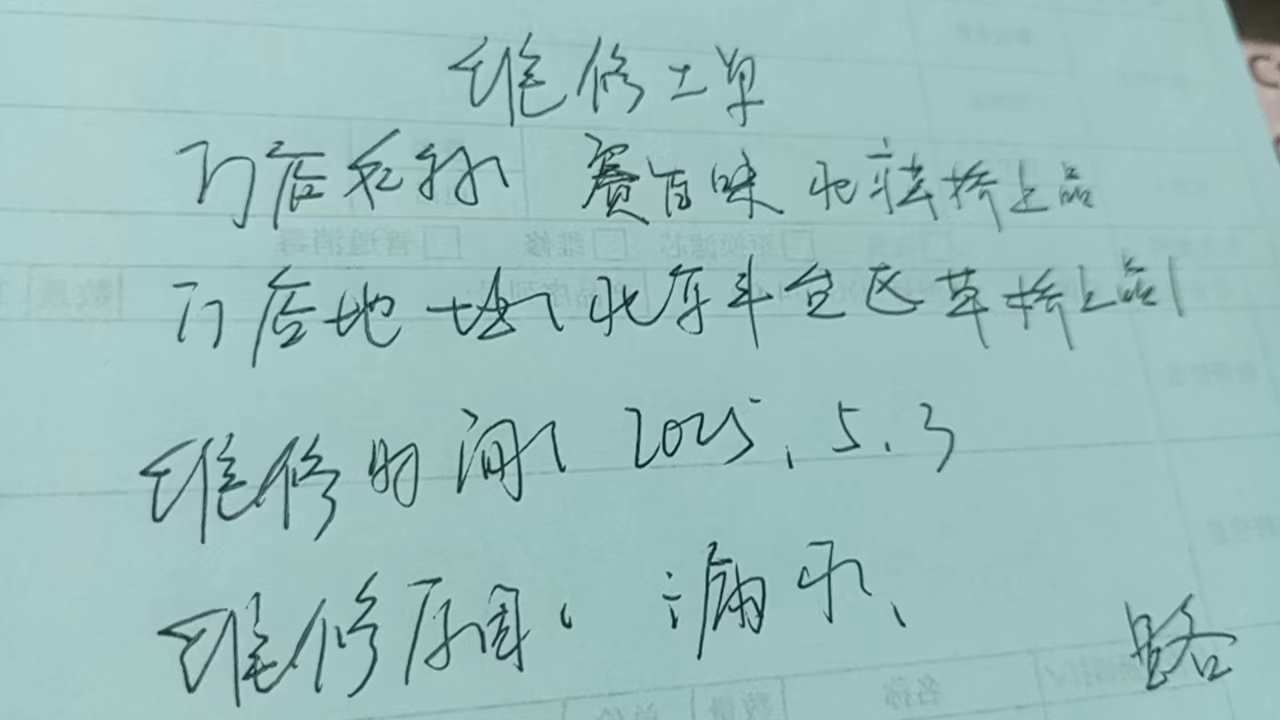 维修工单
门店名称 赛百味 北京草桥上品
门店地址: 北京丰台区草桥上品1
维修时间: 2025.5.3
维修原因: 漏水、
路